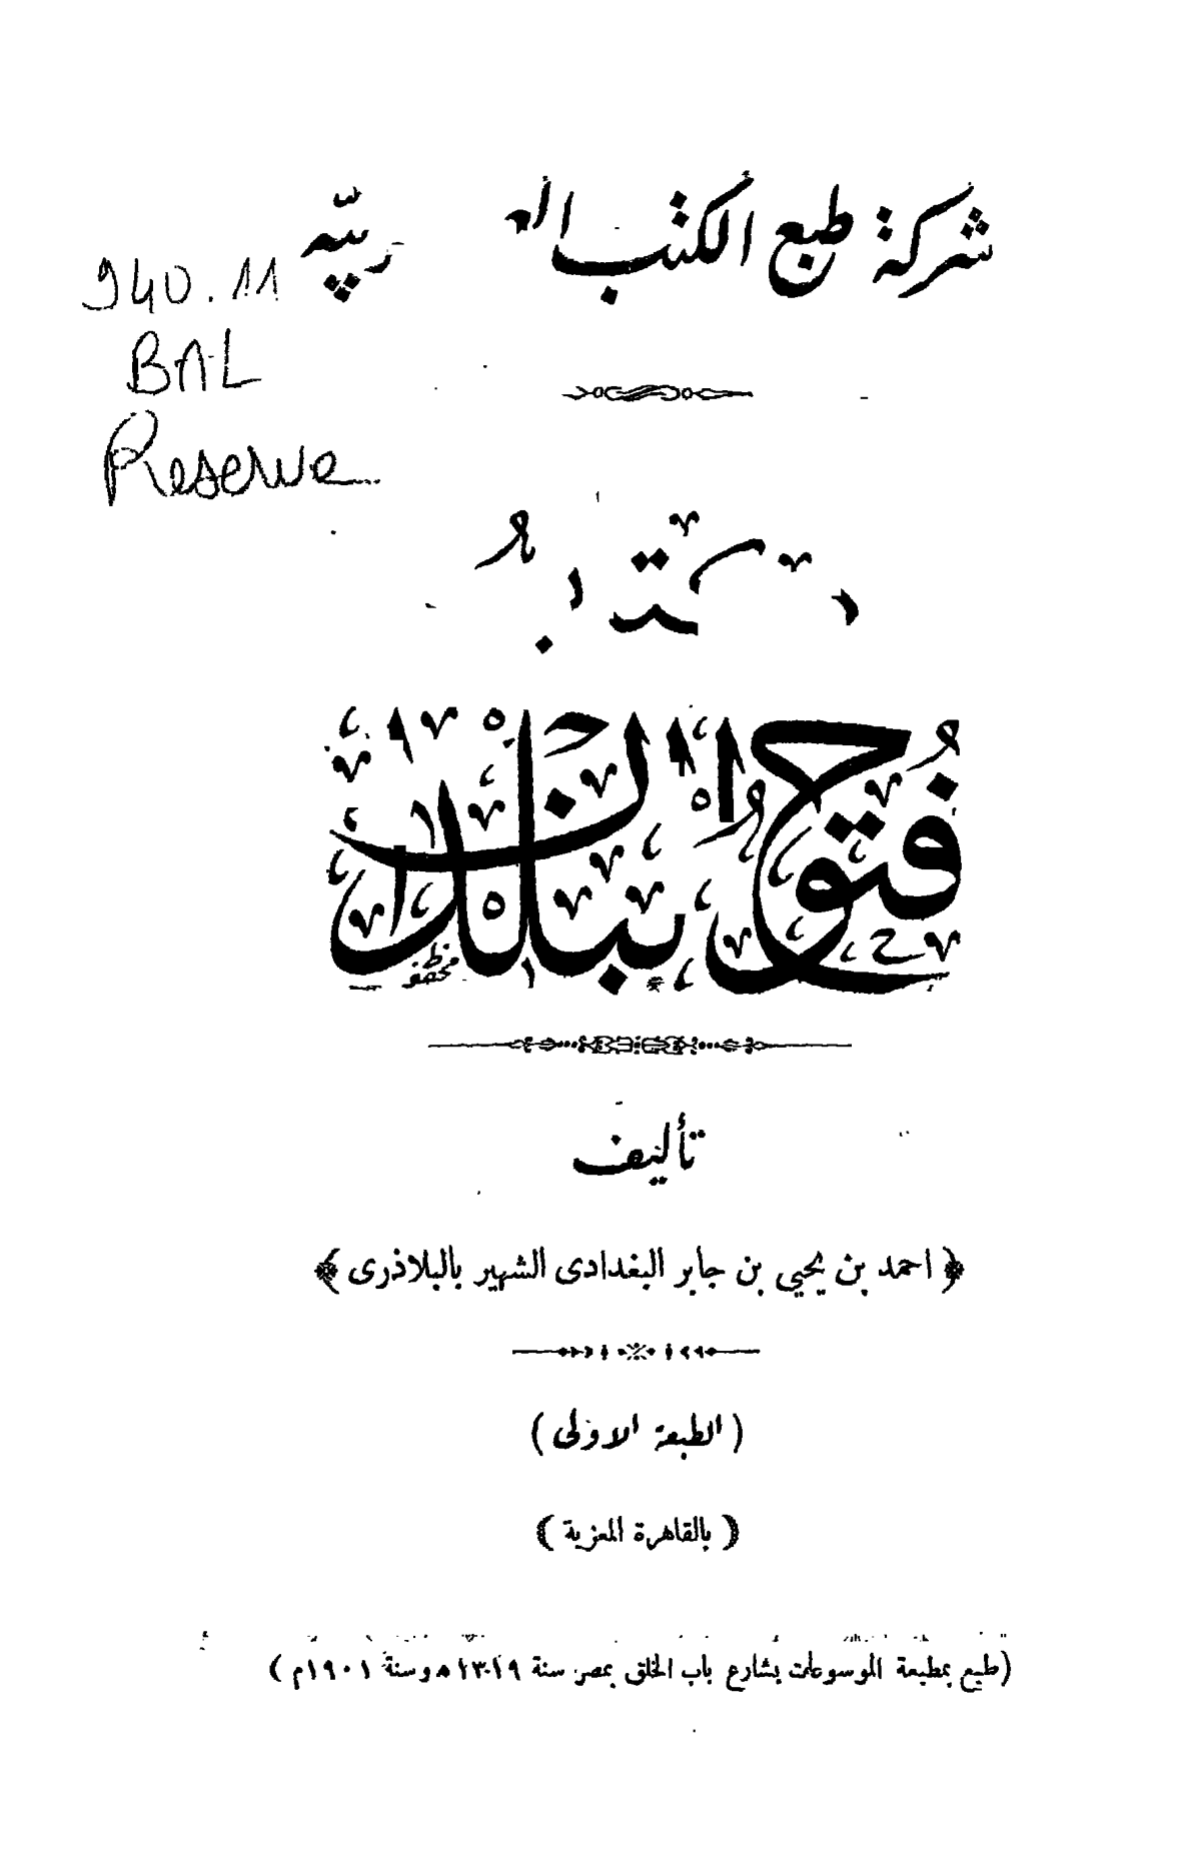 شركة طبع الكتب
940.11
BAL
Reserve
كتاب
فتوح البلدان
تأليف
﴿ احمد بن يحيي بن جابر البغدادى الشهير بالبلاذرى ﴾
( الطبعة الاولى )
( بالقاهرة المعزية )
(طبع بمطبعة الموسوعات بشارع باب الخلق بمصر سنة ١٣١٩ه وسنة ١٩٠١م )